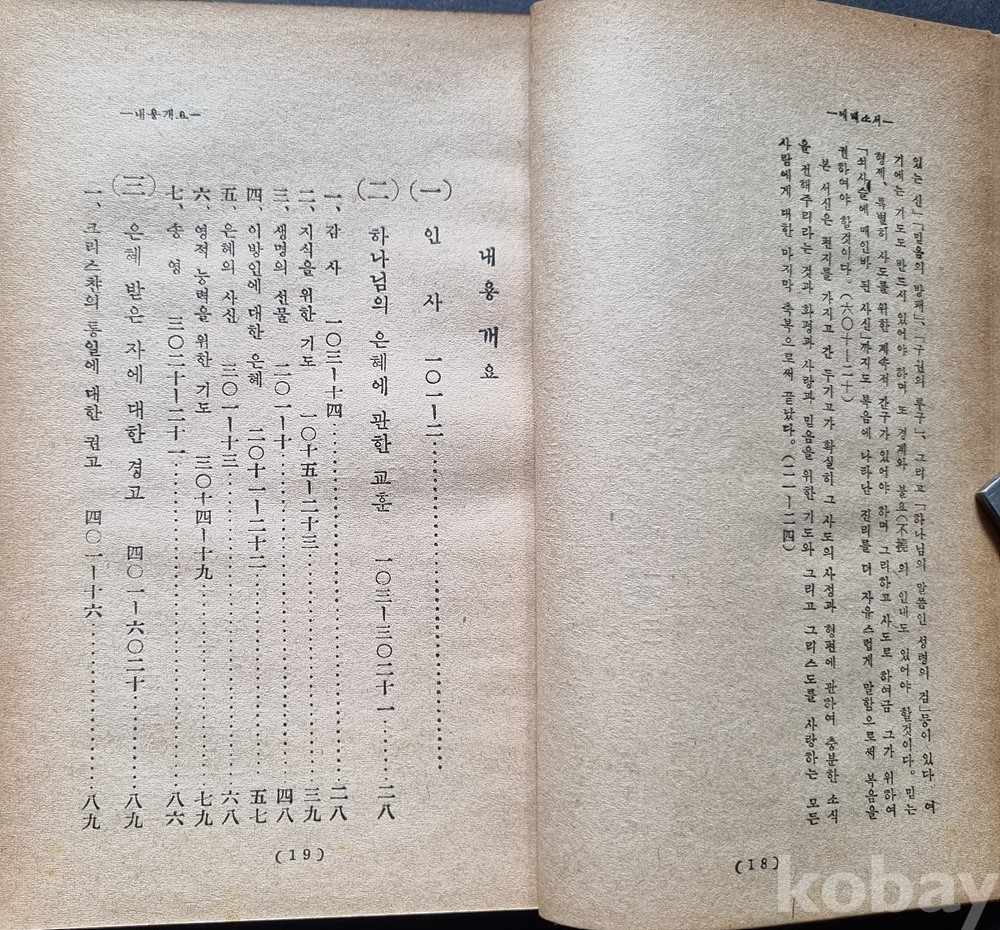 —에베소서—
있는 신」「믿음의 방패」、「구원의 투구」、그리고「하나님의 말씀인 성령의 검」등이 있다 여
기에는 기도도 반드시 있어야 하며 또 경계와 불요(不撓)의 인내도 있어야 할것이다。믿는
형제、특별히 사도를 위한 계속적 간구가 있어야 하며 그리하고 사도로 하여금 그가 위하여
「쇠사슬에 매인바 된 사신」까지도 복음에 나타난 진리를 더 자유스럽게 말함으로써 복음을
권하여야 할것이다。(六〇十—二十)
본 서신은 편지를 가지고 간 두기고가 확실히 그 사도의 사정과 형편에 관하여 충분한 소식
을 전해주리라는 것과 화평과 사랑과 믿음을 위한 기도와 그리고 그리스도를 사랑하는 모든
사람에게 대한 마지막 축복으로써 끝났다。(二一—二四)
(18)
—내용개요—
내용개요
(一) 인 사 一〇一—二
(二) 하나님의 은혜에 관한 교훈 一〇三—三〇二十一 二八
一、감 사 一〇三—十四 二八
二、지식을 위한 기도 一〇十五—二十三 三九
三、생명의 선물 二〇一—十 四八
四、이방인에 대한 은혜 二〇十一—二十二 五七
五、은혜의 사신 三〇一—十三 六八
六、영적 능력을 위한 기도 三〇十四—十九 七九
七、송 영 三〇二十—二十一 八六
(三) 은혜 받은 자에 대한 경고 四〇一—六〇二十 八九
一、크리스챤의 통일에 대한 권고 四〇一—十六 八九
(19)
kobay